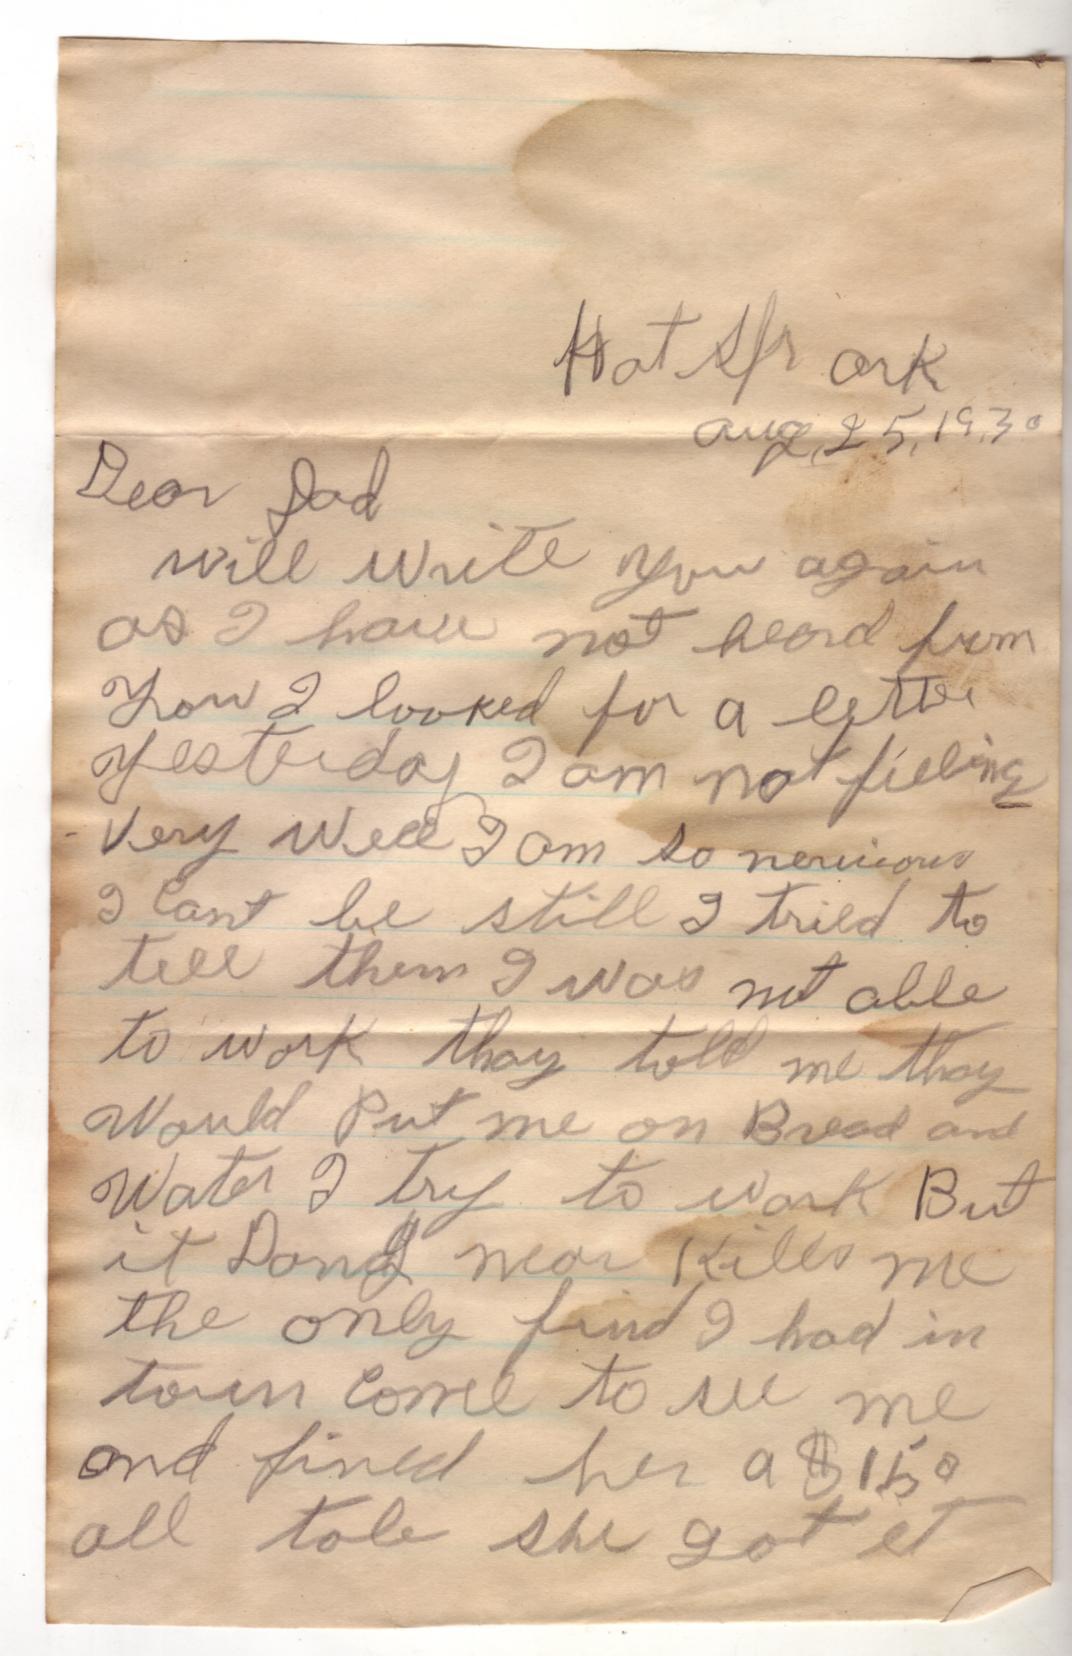 Hot Spr ark
aug, 25, 1930
Dear Dad
will write you again
as I have not heard frum
you I looked for a letter
yesterday I am not fieling
very well I am so nervious
I Cant be still I tried to
tell them I was not able
to work thay told me thay
Would Put me on Bread and
Water I try to work But
it Dang near Kills me
the only find I had in
town Come to see me
and fined her a $150
all tole she got et